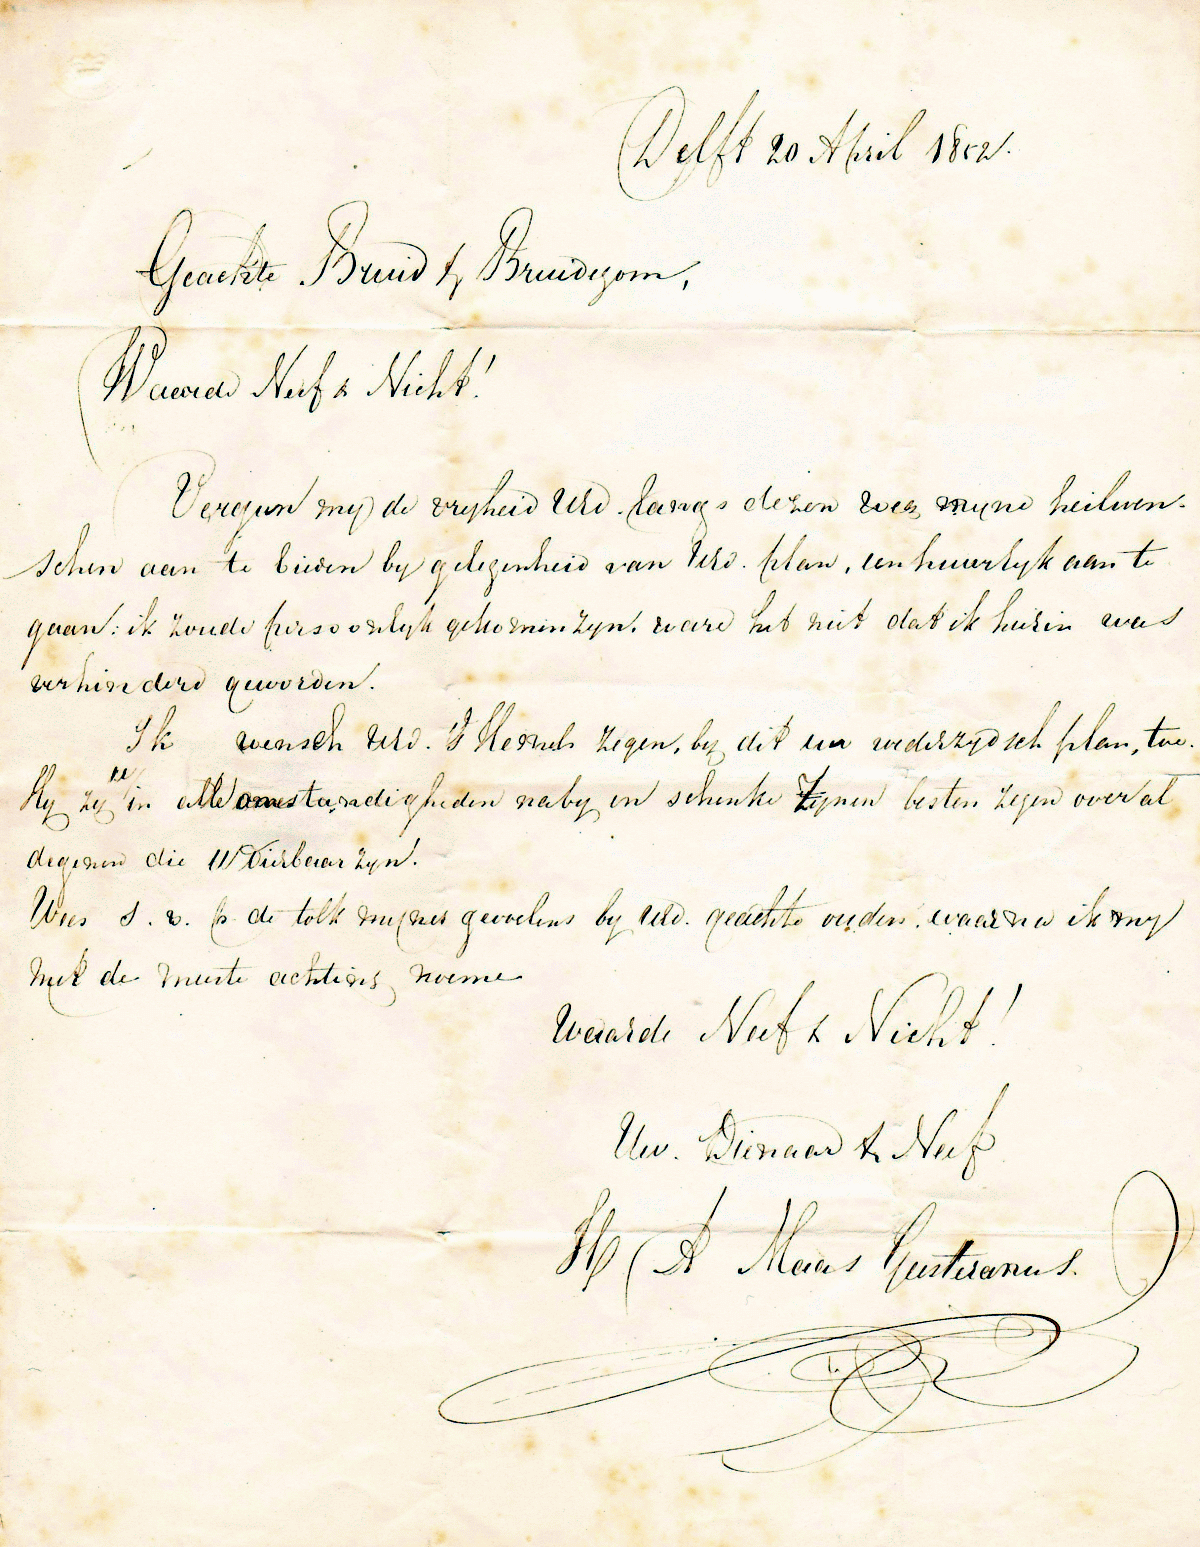 Delft 20 April 1852.
Geachte Bruid & Bruidegom,
Waarde Neef & Nicht!
Vergun mij de vryheid UEd. langs dezen weg myne heilwen-
schen aan te bieden by gelegenheid van UEd. plan, een huwelyk aan te
gaan: ik zoude persoonlyk gekomen zyn, ware het niet dat ik hierin was
verhinderd geworden.
Ik wensch UEd. 's Hemels zegen, by dit uw wederzydsch plan, toe.
Hy zy u in alle omstandigheden naby en schenke Zynen besten zegen over al
degenen die U dierbaar zyn!
Wees s. v. p. de tolk myner gevoelens by UEd. geachte ouders, waarna ik my
met de meeste achting noeme
Waarde Neef & Nicht!
Uw. Dienaar & Neef
H A Maas Geesteranus.